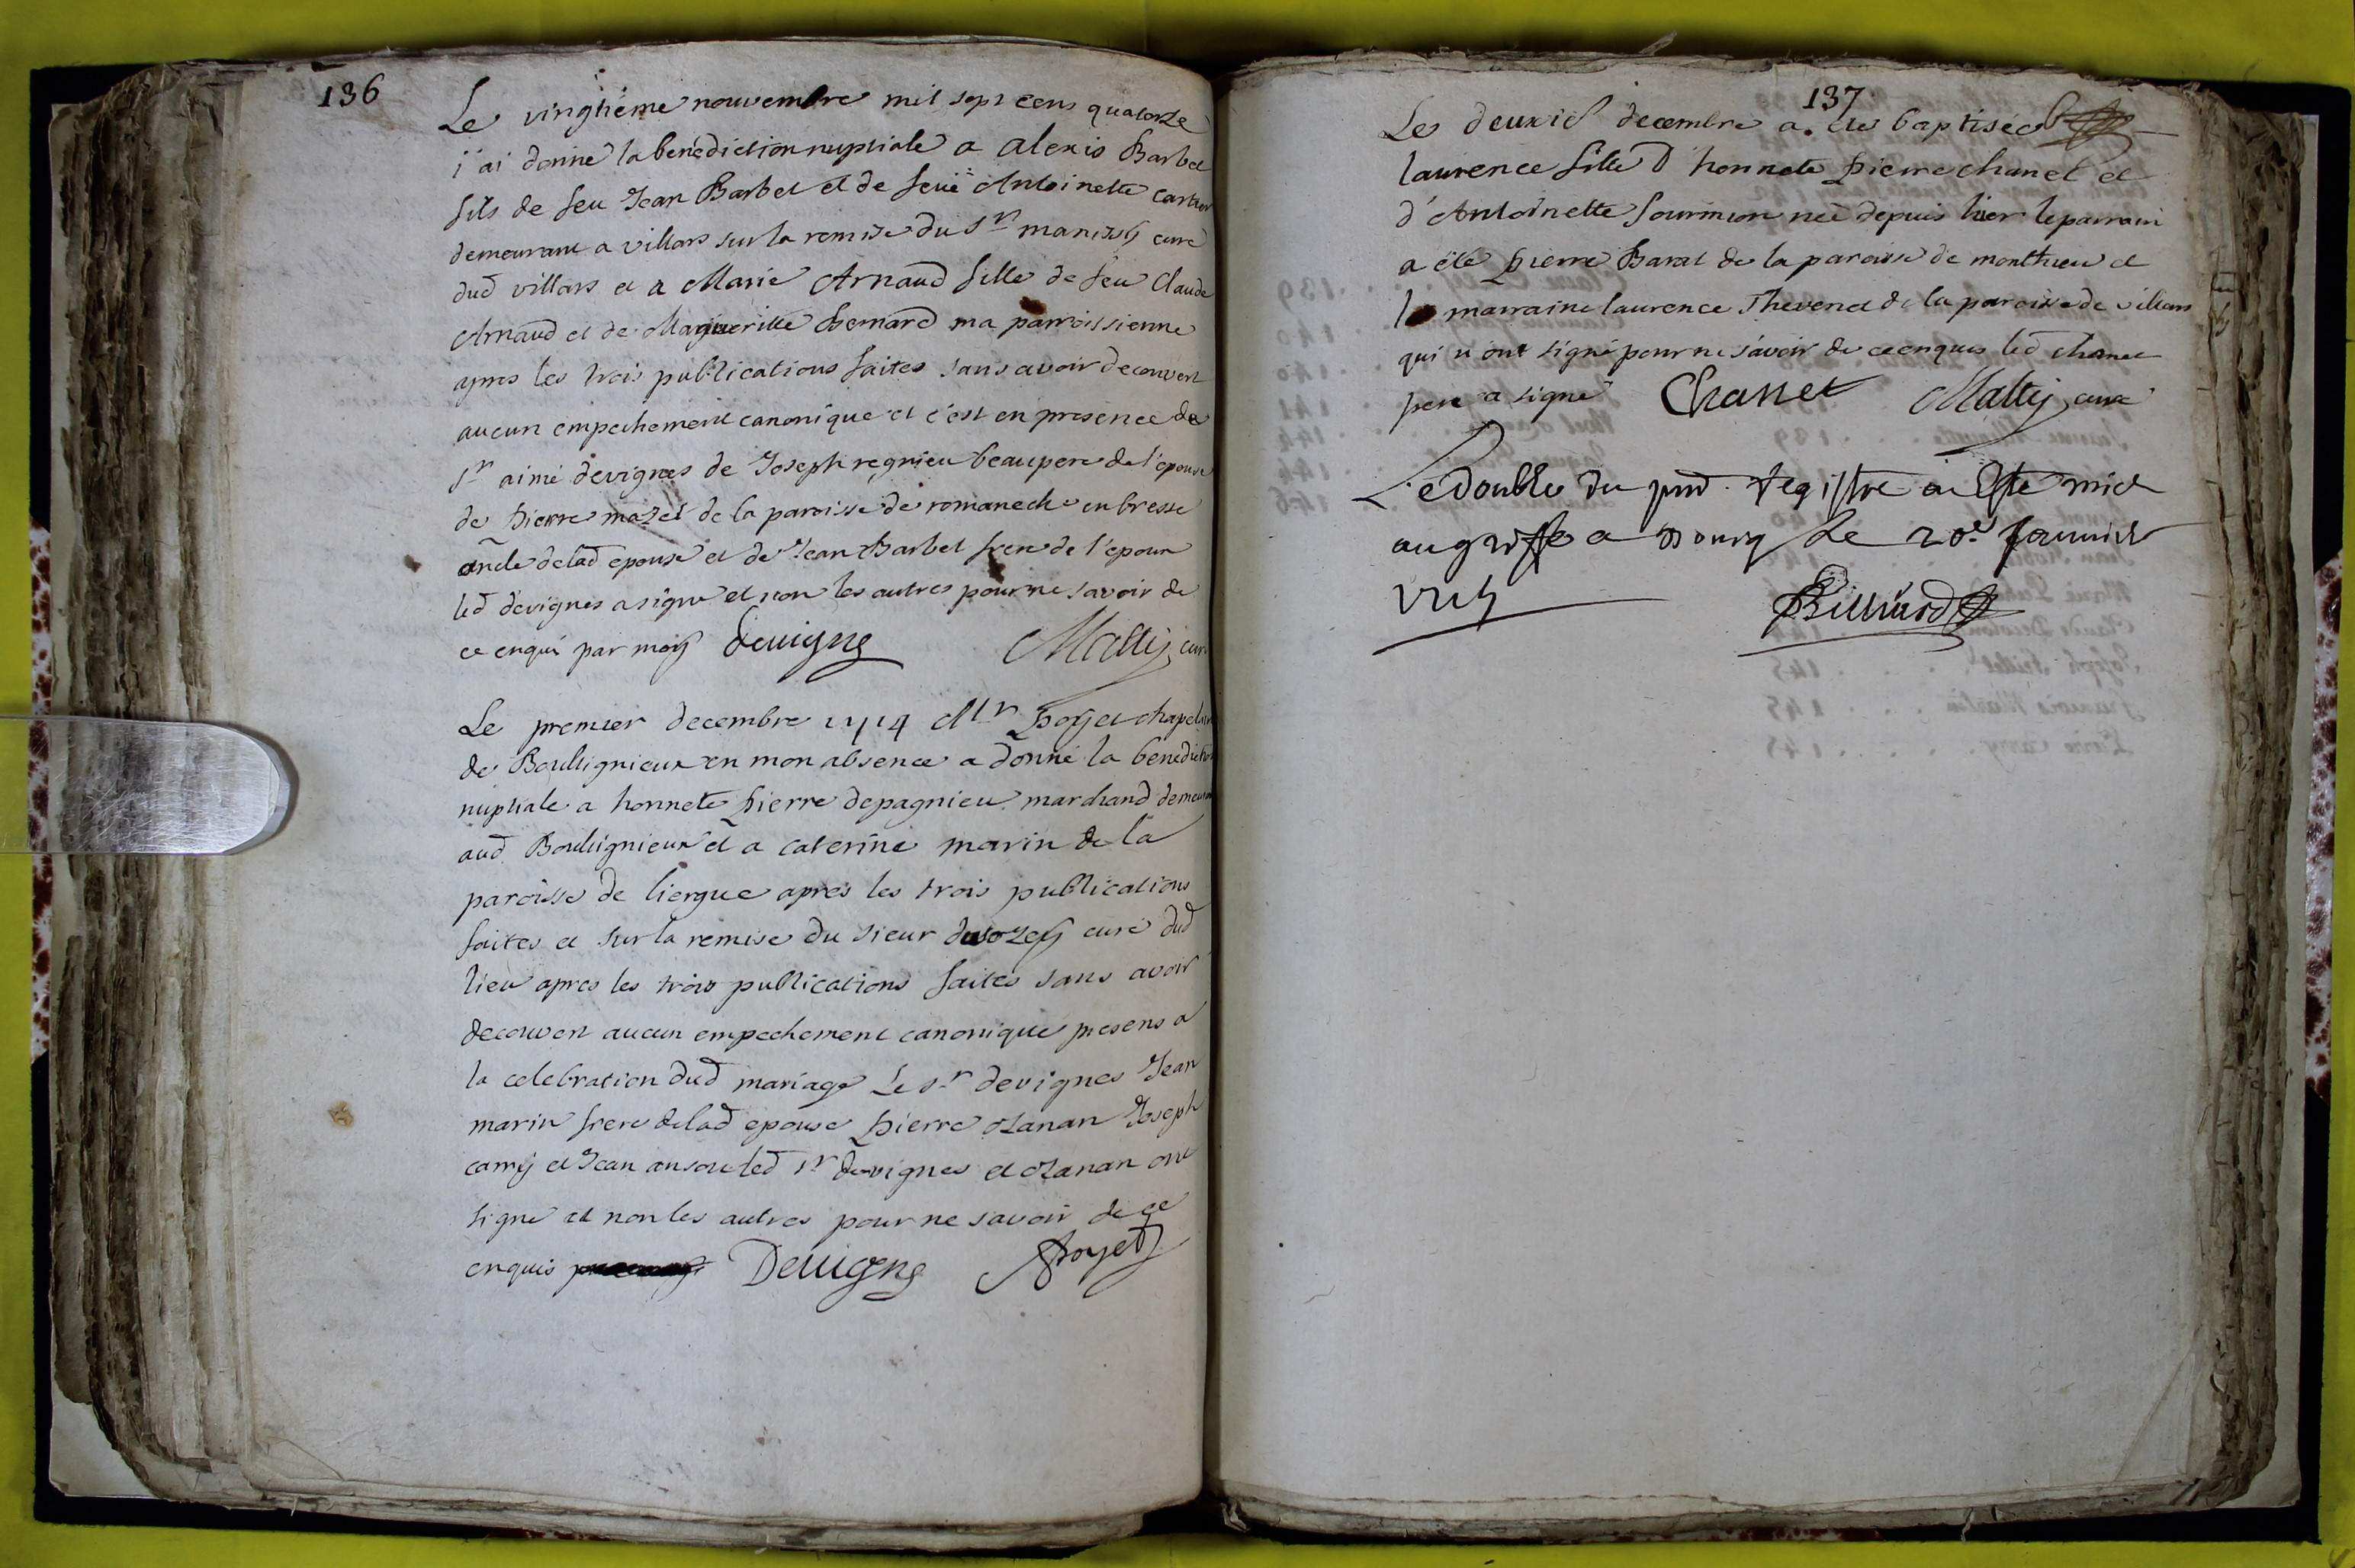 136
Le vingtiême nouvembre mil sept cens quatorze
j'ai donné la benediction nuptiale a alexis Barbet
fils de feu Jean Barbet et de feüe Antoinette cartier
demeurant a villars sur la remise du Sr curé
dud villars et a Marie Arnaud fille de feu Claude
Arnaud et de Margueritte Bernard ma parroissienne
apres les trois publications faites sans avoir decouvert
aucun empechement canonique et c'est en presence de
Sr aimé devignes de Joseph regnieu beaupere de l'epouse
de Pierre mazet de la paroisse de romaneche en bresse
oncle delad epouse et de Jean Barbet frere de l'epoux
led devignes a signe et non les autres pour ne savoir de
ce enqui par moy Devigne Mattij curé
Le premier decembre 1714 Mr Royet chapelain
de Boulignieux en mon absence a donné la benediction
nuptiale a honnete Pierre depagnieu marchand demeurant
aud Boulignieux et a caterine marin de la
paroisse de liergue apres les trois publications
faites et sur la remise du sieur curé dud
lieu apres les trois publications faites sans avoir
decouvert aucun empechement canonique presens a
la celebration dud mariage Le sr devignes Jean
marin frere delad epouse Pierre ozanan Joseph
carry et Jean led sr devignes et ozanan ont
signe et non les autres pour ne savoir de ce
enquis Devigne Royet
137
Le deuxie decembre a été baptisée
laurence fille d'honnete Pierre chanet et
d'Antoinette fourmion née depuis hier le parrain
a été Pierre Barat de la paroisse de monthieu et
la marraine laurence Thevenet de la paroisse de villars
qui n'ont signé pour ne savoir de ce enquis led chanet
pere a signé Chanet Mattij curé
Le double du pnt Registre a Esté mis
au greffe a Bourg le 20e Janvier
Billiard